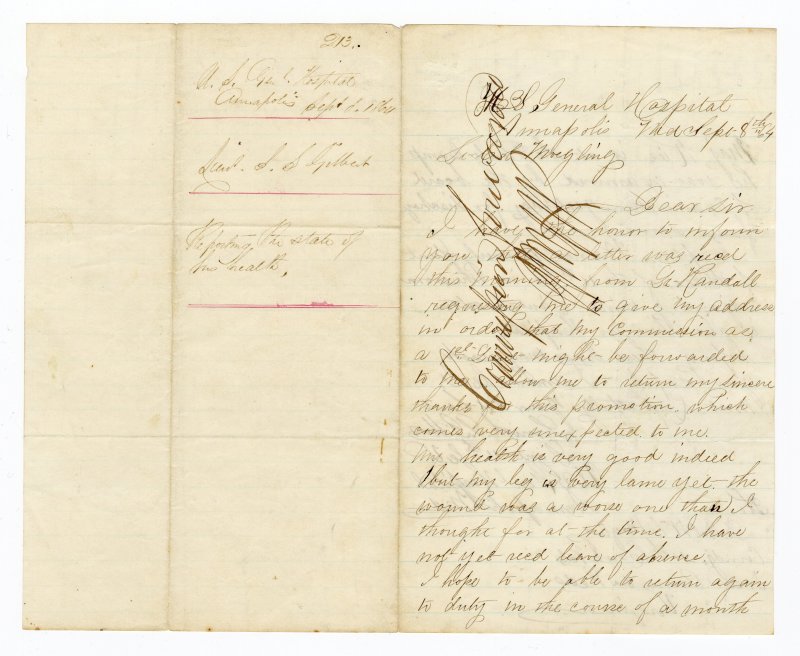 213.
U. S. Genl. Hospital
Annapolis Sept 8. 1864
Lieut. S. S Gilbert
Reporting the state of
his health,
U S General Hospital
Annapolis Md Sept 8th 64
Dear Sir
I have the honor to inform
you that a letter was recd
this morning from Gt Randall
requesting me to give my address
in order that my Commission as
a 1st Lieut might be forwarded
to me Allow me to return my sincere
thanks for this promotion. which
comes very unexpected to me.
My health is very good indeed
but my leg is very lame yet the
wound was a worse one than I
thought for at the time. I have
not yet recd leave of absence
I hope to be able to return again
to duty in the course of a month